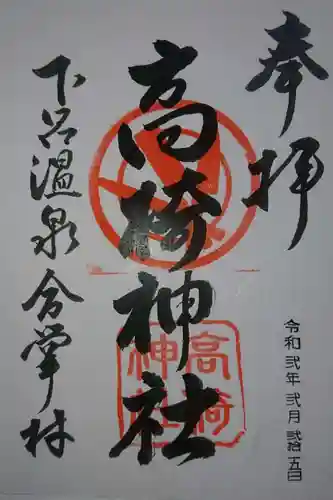 奉拝
高椅神社
下呂温泉合掌村
令和弐年弐月弐拾五日
高椅
神社